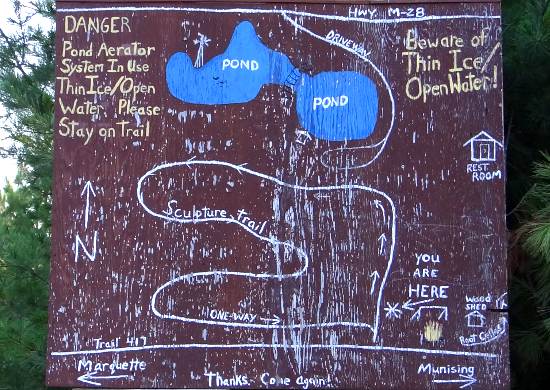 DANGER
Pond Aerator
System In Use
Thin Ice/Open
Water. Please
Stay on trail
HWY. M-28
DRIVEWAY
Beware of
Thin Ice/
Open Water!
POND
POND
REST
ROOM
Sculpture trail
N
YOU
ARE
HERE
WOOD
SHED
Root Cellar
ONE-WAY
Marquette
Thanks. Come again.
Munising